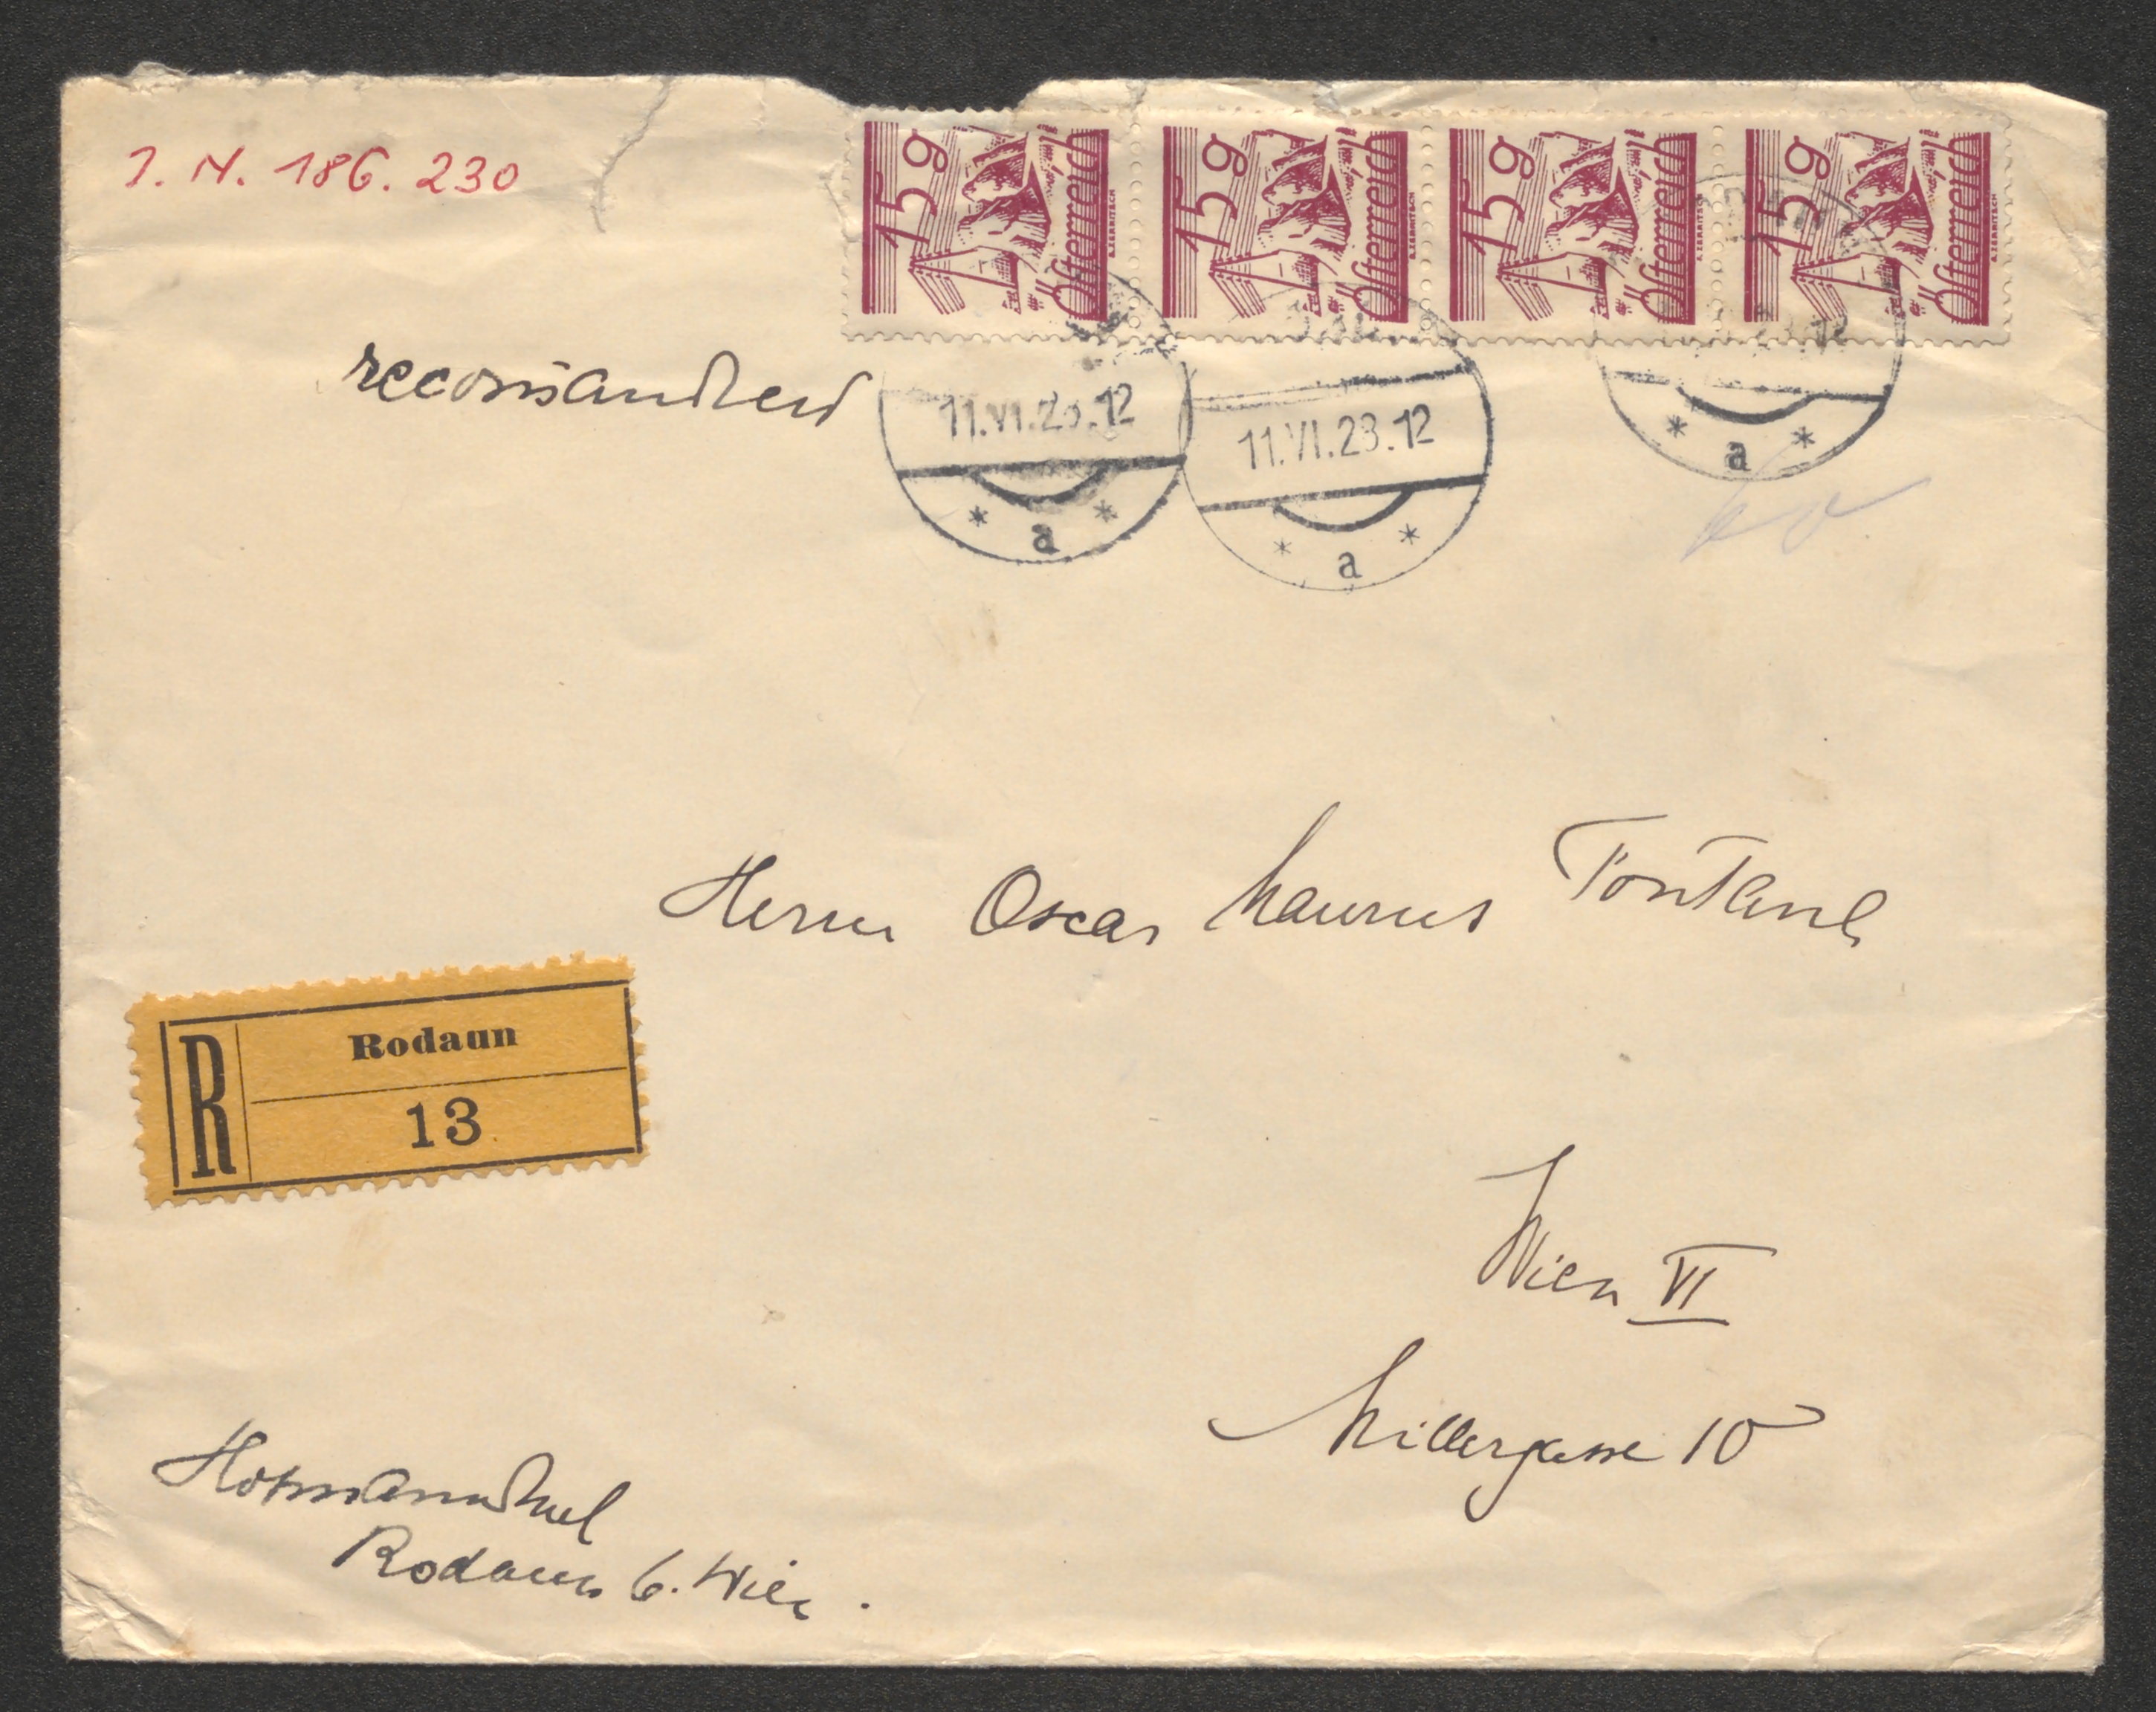 J. N. 186.230
15 g Österreich
15 g Österreich
15 g Österreich
15 g Österreich
recommandiert
11.VI.28.12
* a *
11.VI.28.12
* a *
* a *
60
Herrn Oscar Maurus Fontana
R Rodaun
13
Wien VI
Millergasse 10
Hofmannsthal
Rodaun b. Wien.